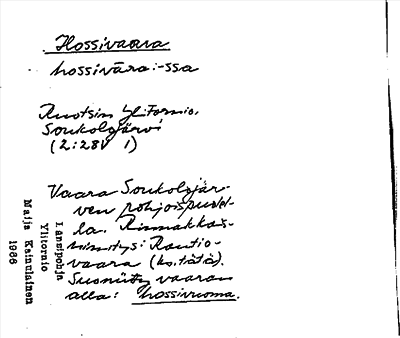 Hossivaara
hossivāra:-ssa
Ruotsin Ylitornio,
Soukolojärvi
(2:28V 1)
Vaara Soukolojär-
ven pohjoispuolel-
la. Rinnakkais-
nimitys: Rautio-
vaara (ks. tätä).
Suoniitty vaaran
alla: hossivuoma.
Länsipohja
Ylitornio
Maija Keinulainen
1966